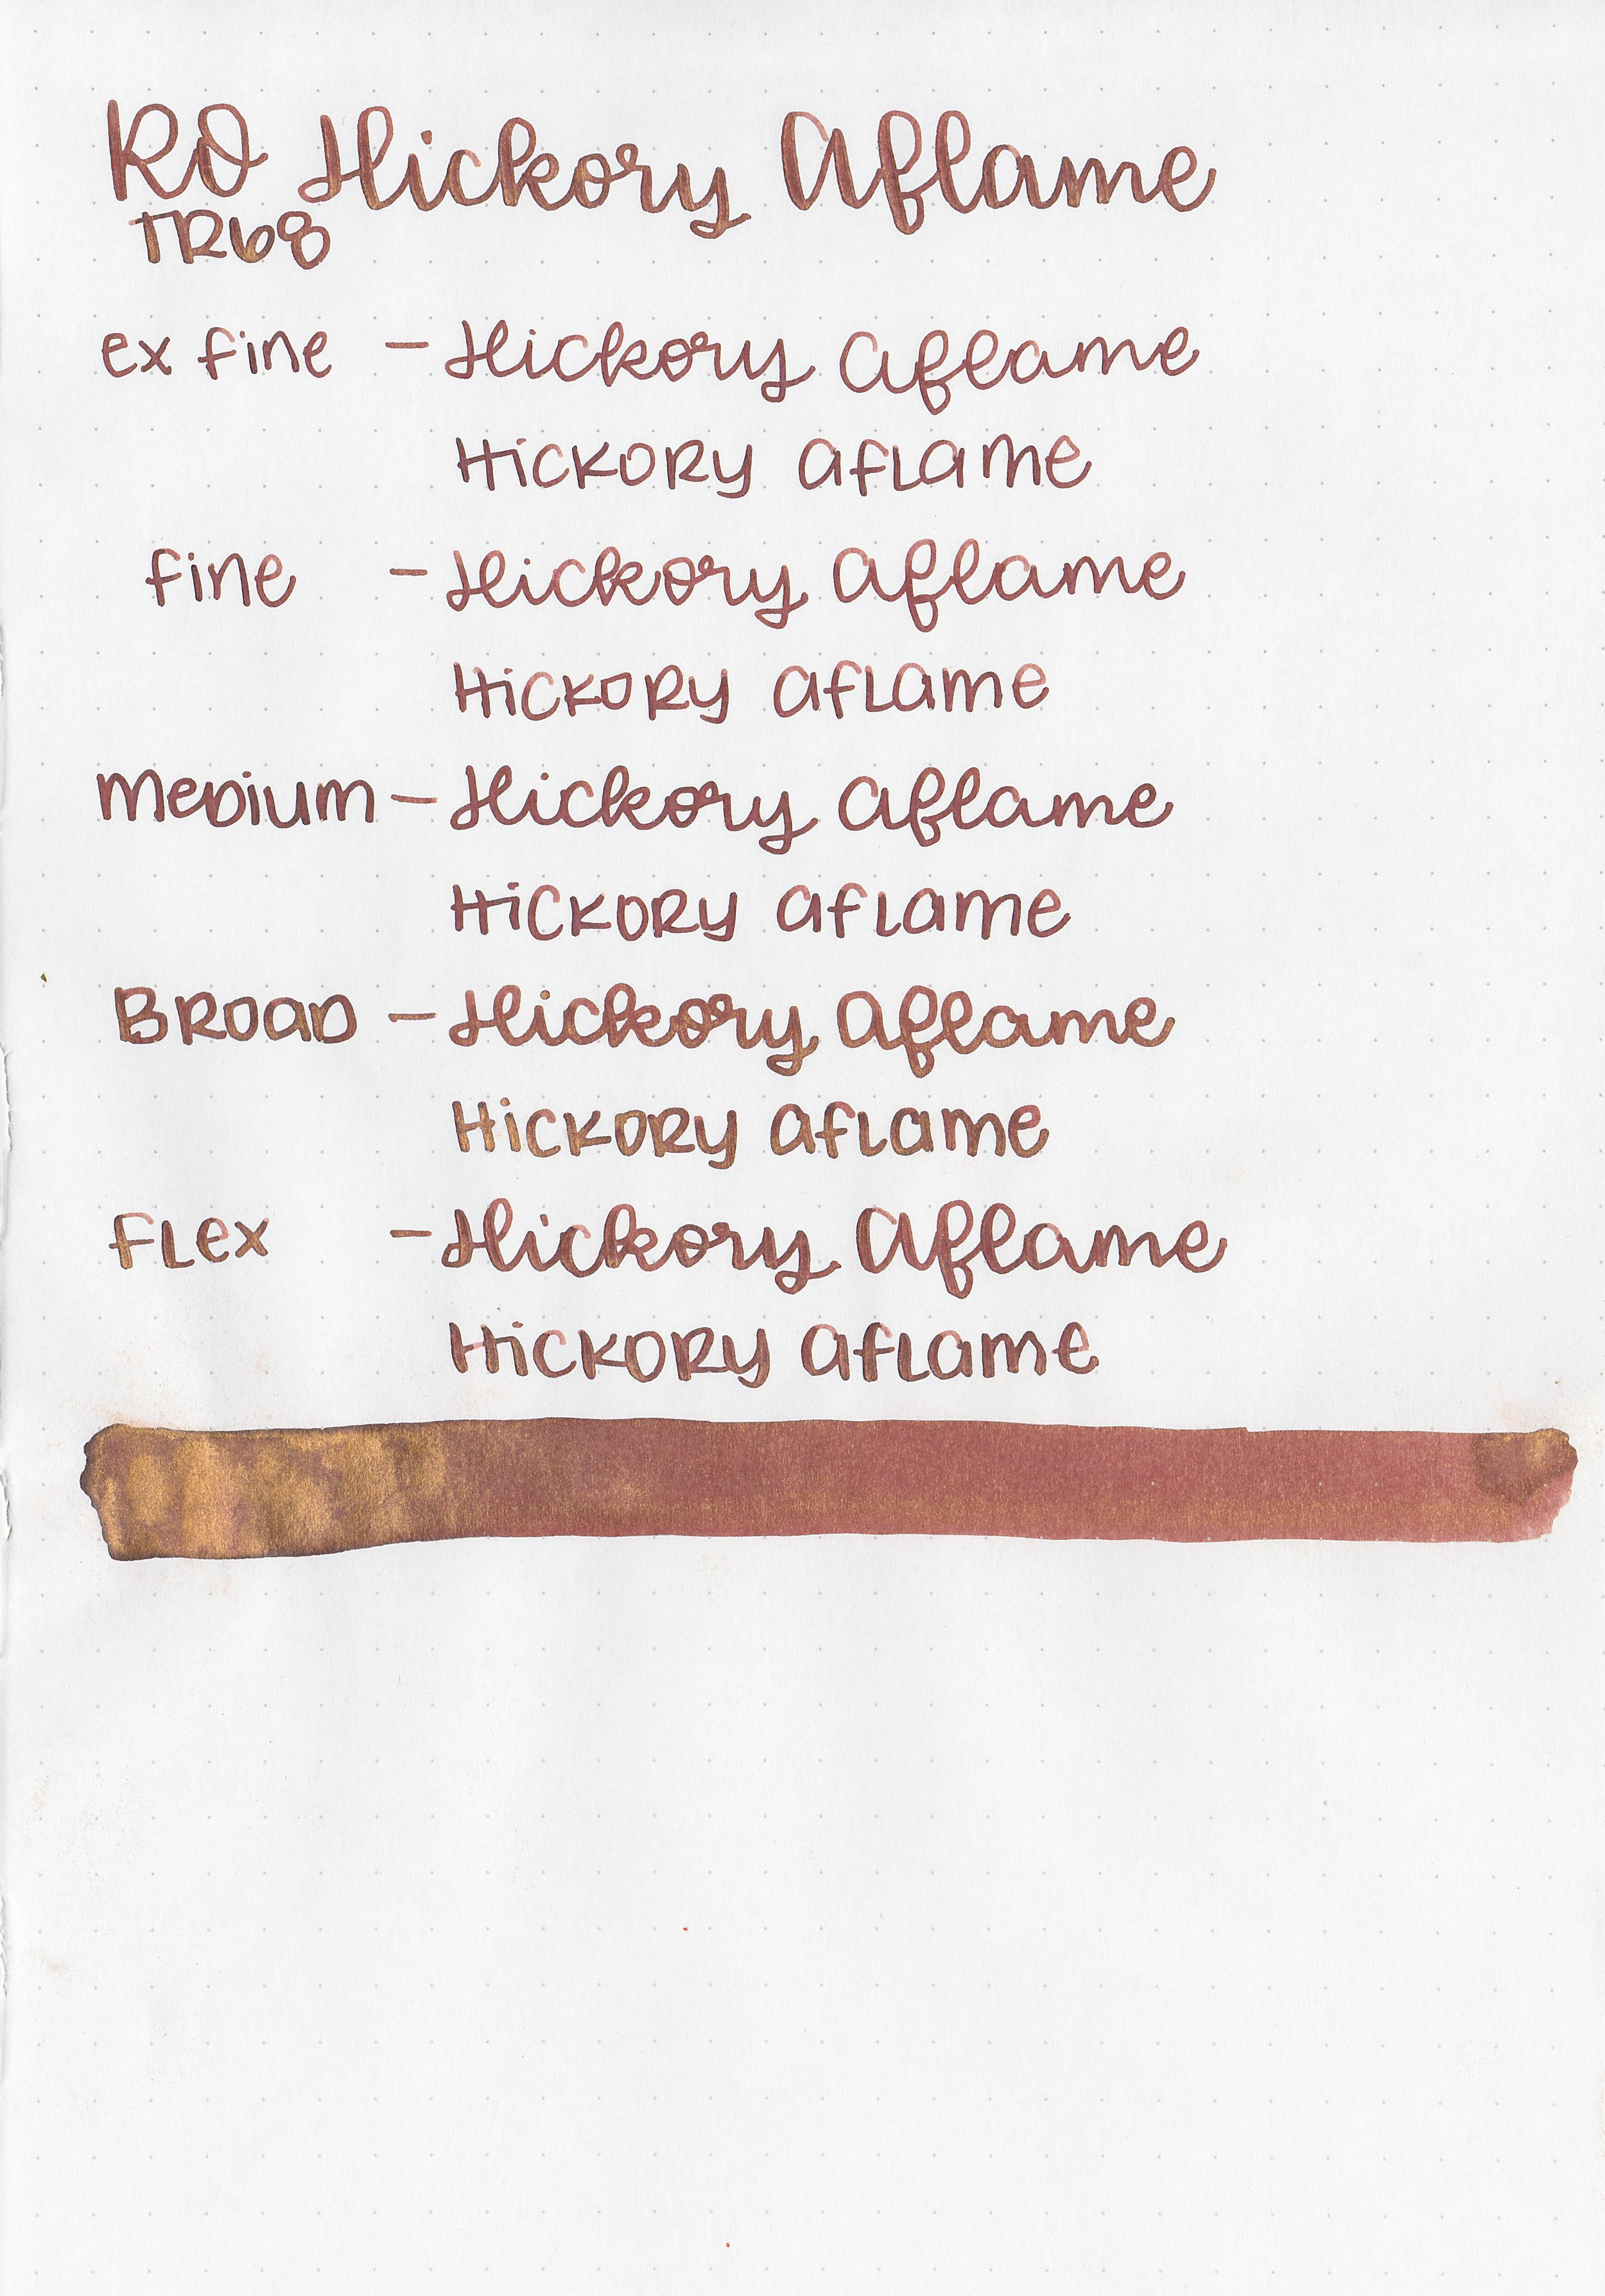 RO Hickory Aflame
TR68
ex fine - Hickory Aflame
Hickory Aflame
fine - Hickory Aflame
Hickory Aflame
Medium - Hickory Aflame
Hickory Aflame
Broad - Hickory Aflame
Hickory Aflame
Flex - Hickory Aflame
Hickory Aflame